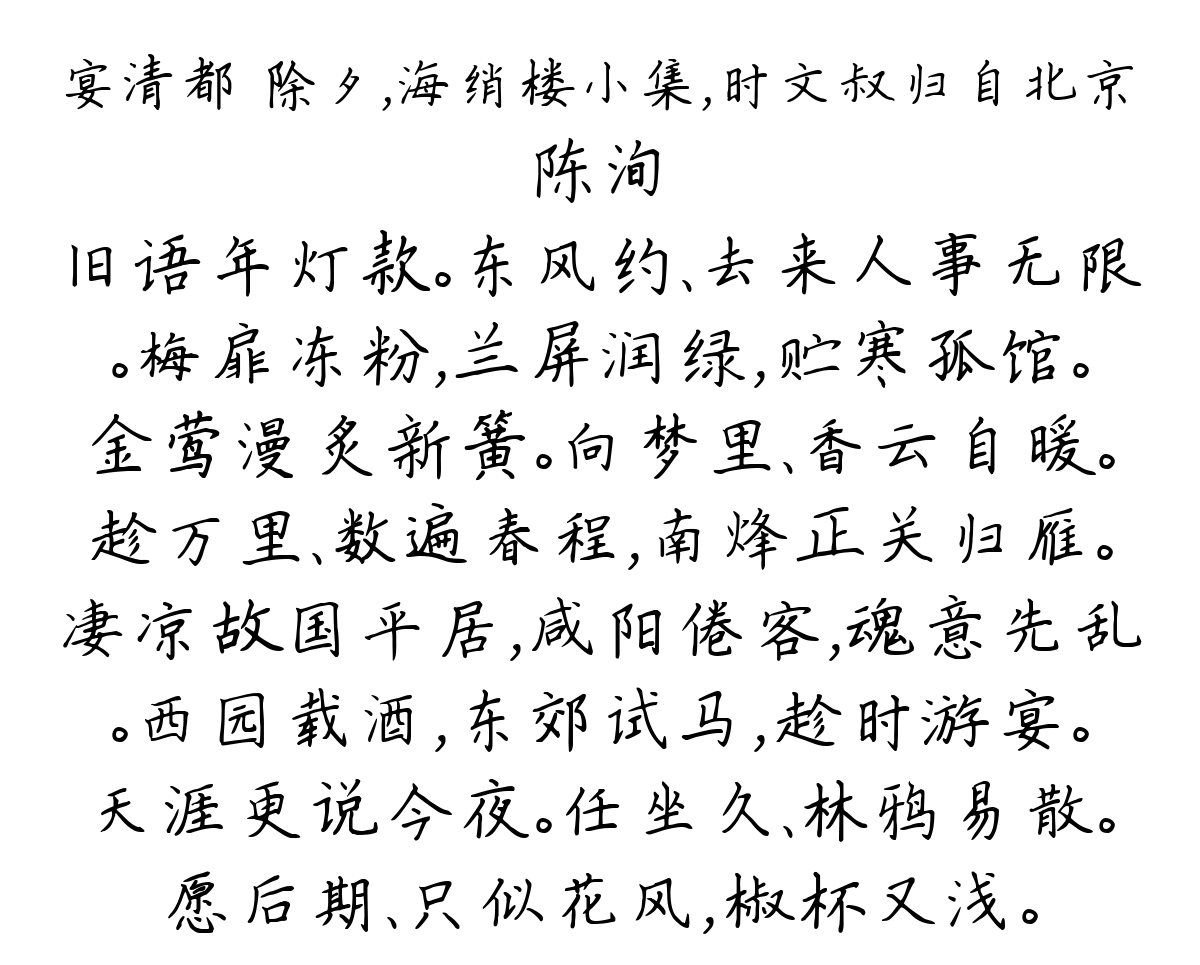 宴清都 除夕,海绡楼小集,时文叔归自北京
陈洵
旧语年灯款。东风约、去来人事无限
。梅扉冻粉,兰屏润绿,贮寒孤馆。
金莺漫炙新簧。向梦里、香云自暖。
趁万里、数遍春程,南烽正关归雁。
凄凉故国平居,咸阳倦客,魂意先乱
。西园载酒,东郊试马,趁时游宴。
天涯更说今夜。任坐久、林鸦易散。
愿后期、只似花风,椒杯又浅。